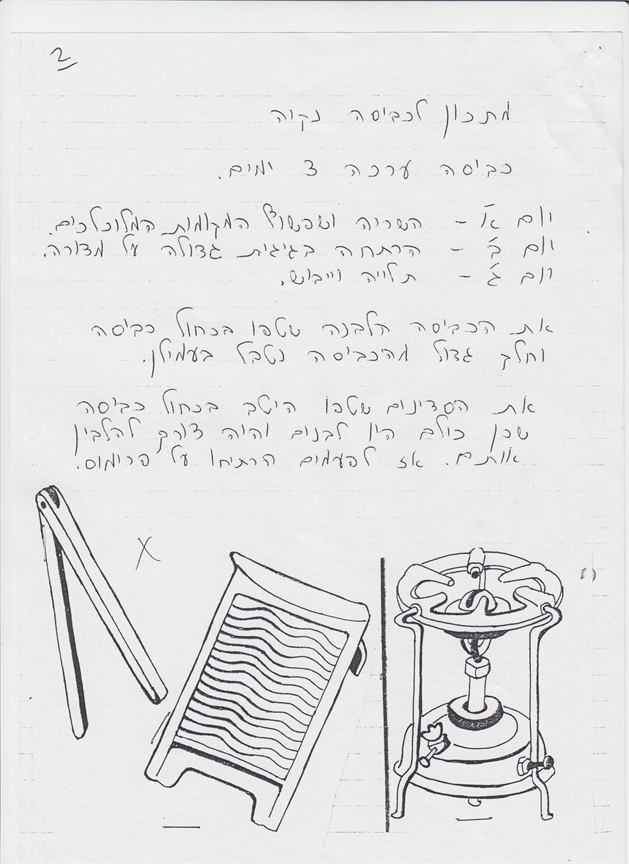 2
מתכון לכביסה נקיה
כביסה ערכה 3 ימים.
יום א' - השריה ושפשוף המקומות המלוכלכים.
יום ב' - הרתחה בגיגית גדולה על מדורה.
יום ג' - תלייה וייבוש.
את הכביסה הלבנה שטפו בכחול כביסה
וחלק גדול מהכביסה נטבל בעמילן.
את הסדינים שטפו היטב בכחול כביסה
שכן כולם היו לבנים והיה צורך להלבין
אותם. אז לפעמים הרתיחו על פרימוס.
X